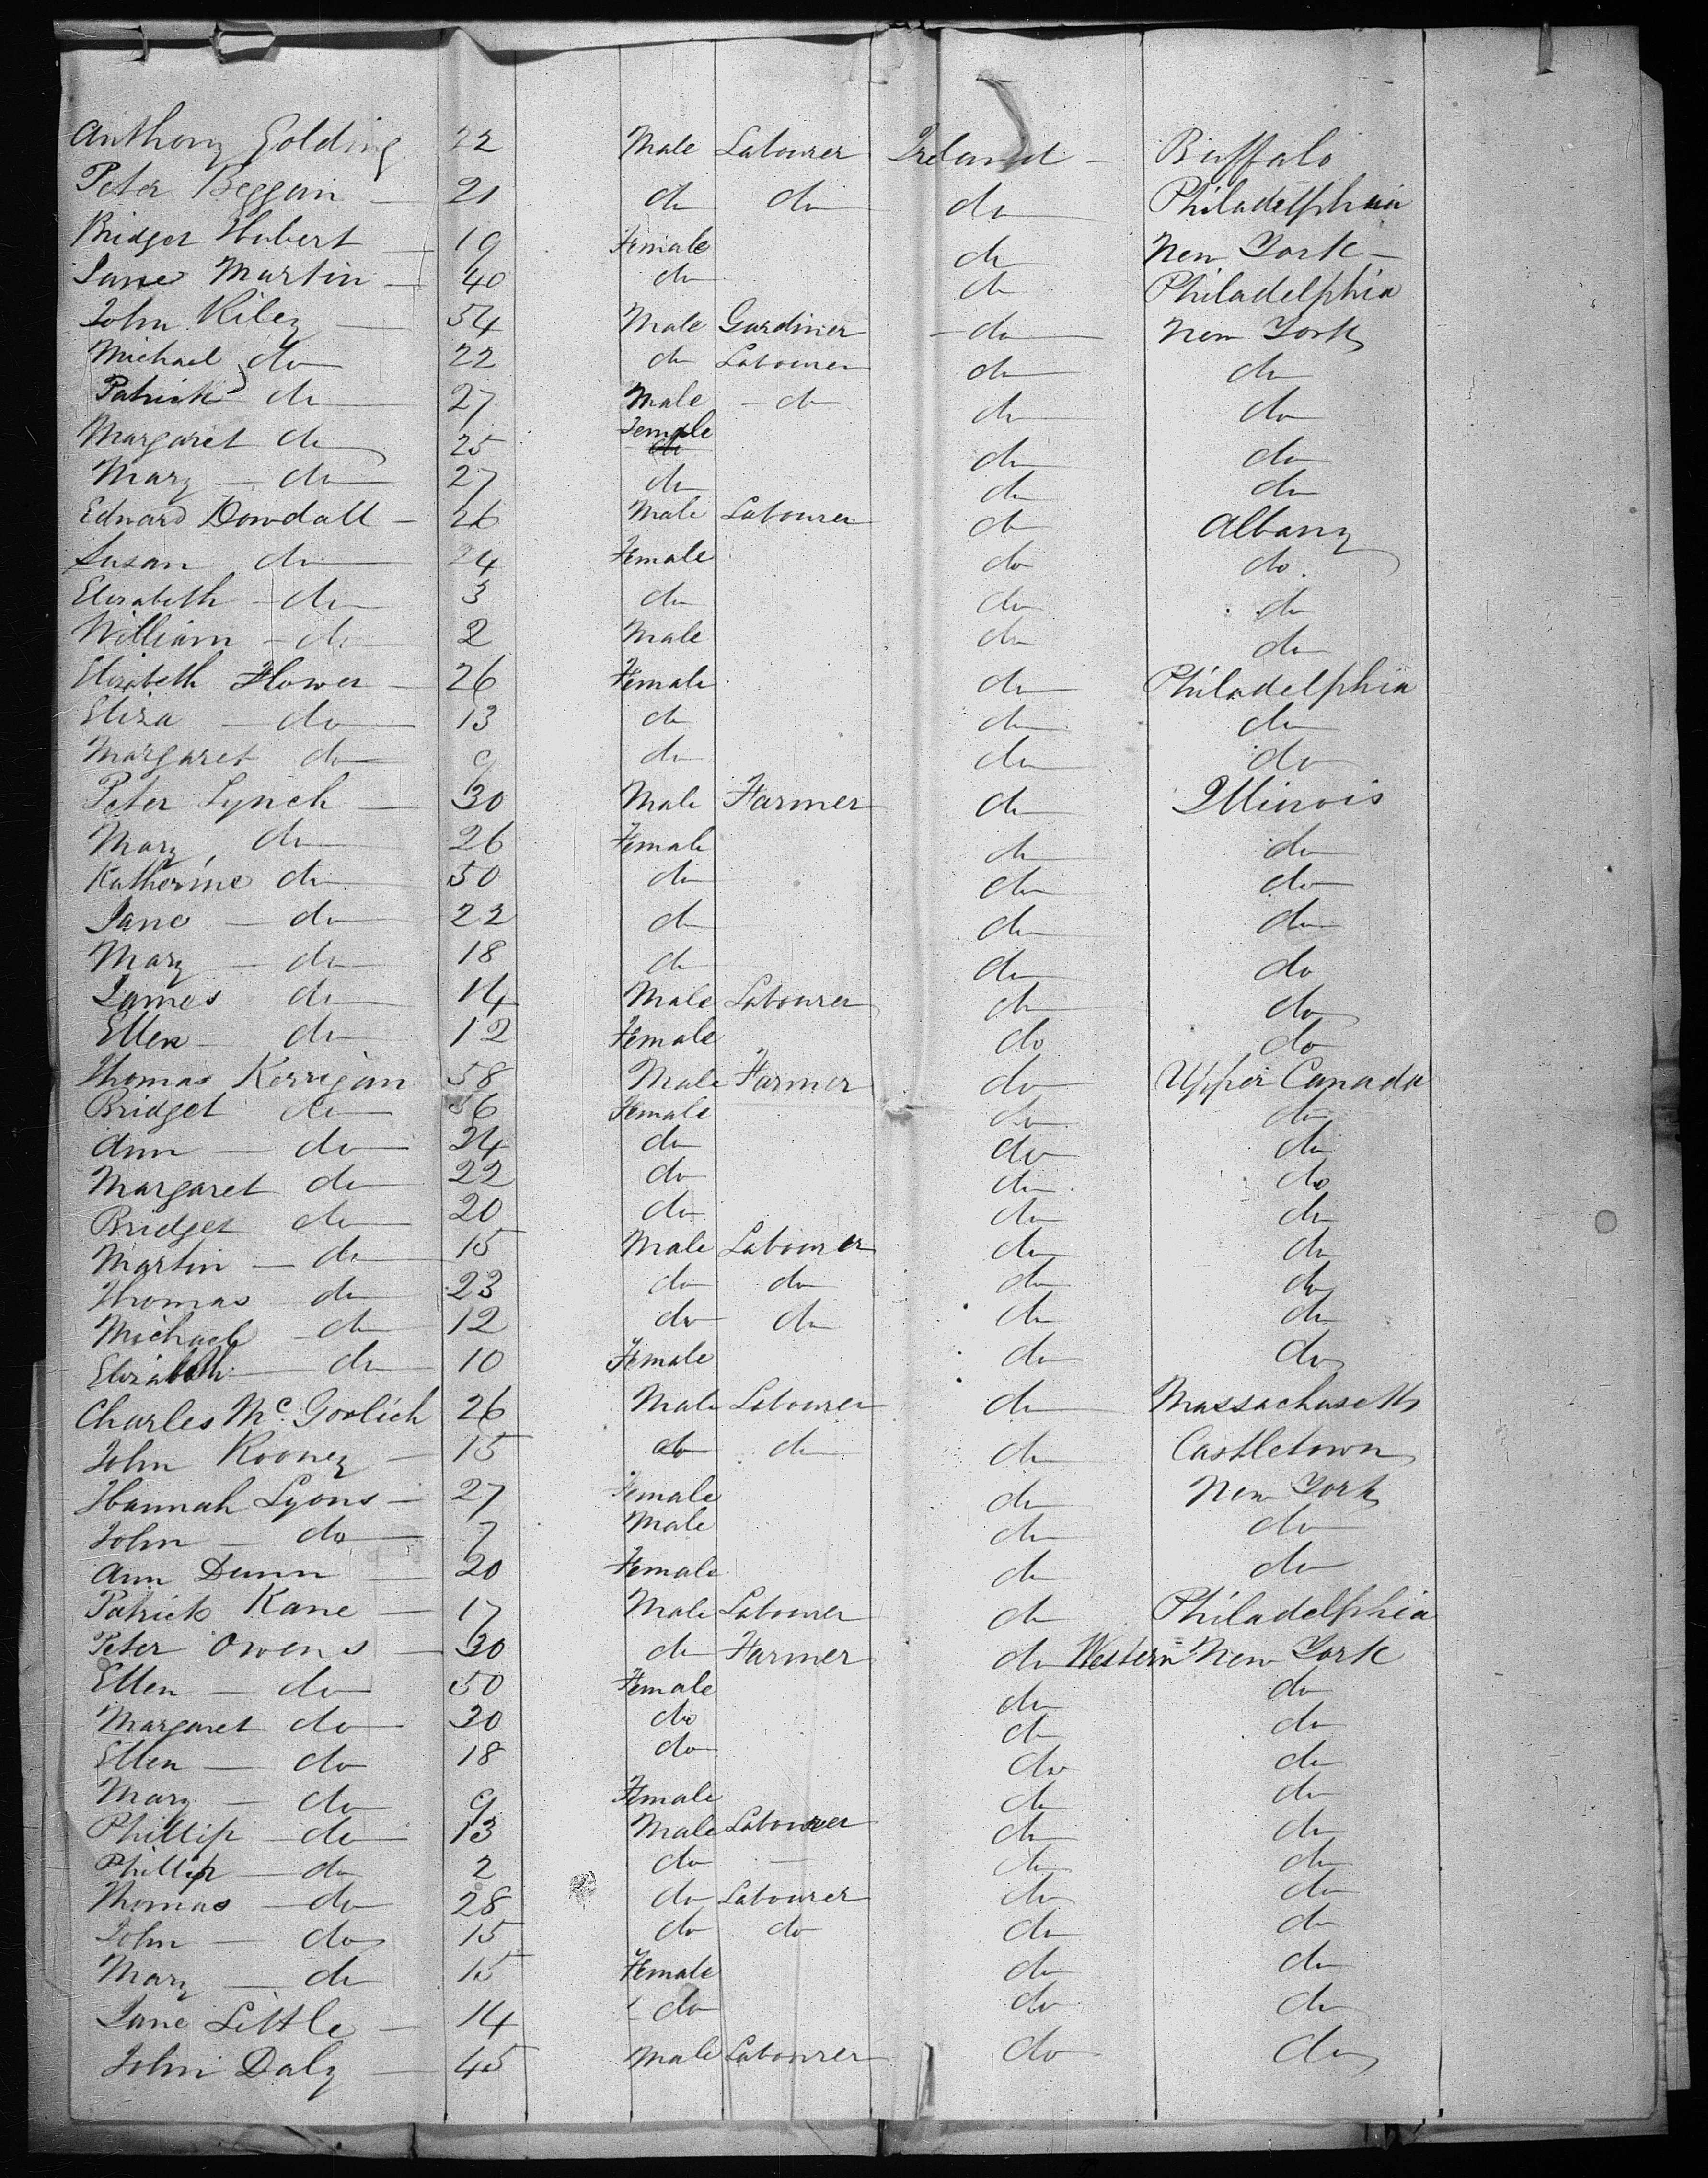 Anthony Golding 22 Male Labourer Ireland - Buffalo
Peter Beggan - 21 do do do Philadelphia
Bridget Hubert - 19 Female do New York -
Jane Martin - 40 do do Philadelphia
John Riley - 54 Male Gardiner - do New York
Michael do 22 do Labourer do do
Patrick do 27 Male - do do do
Margaret do 25 Female do do
Mary - do 27 do do do
Edward Dowdall - 26 Male Labourer do Albany
Susan do 24 Female do do
Elizabeth - do 3 do do do
William - do 2 Male do do
Elizabeth Flower - 26 Female do Philadelphia
Eliza - do 13 do do do
Margaret do 9 do do do
Peter Lynch - 30 Male Farmer do Illinois
Mary do 26 Female do do
Katherine do 50 do do do
Jane - do 22 do do do
Mary - do 18 do do do
James do 14 Male Labourer do do
Ellen - do 12 Female do do
Thomas Kerrigan 58 Male Farmer do Upper Canada
Bridget do 56 Female do do
Ann - do 24 do do do
Margaret do 22 do do do
Bridget do 20 do do do
Martin - do 15 Male Labourer do do
Thomas do 23 do do do do
Michael do 12 do do do do
Elizabeth do 10 Female do do
Charles Mc. Goolich 26 Male Labourer do Massachusetts
John Rooney - 15 do do do Castletown
Hannah Lyons - 27 Female do New York
John - do 7 Male do do
Ann Dunn - 20 Female do do
Patrick Kane - 17 Male Labourer do Philadelphia
Peter Owens - 30 do Farmer do Western New York
Ellen - do 50 Female do do
Margaret do 30 do do do
Ellen - do 18 do do do
Mary - do 9 Female do do
Phillip - do 13 Male Labourer do do
Phillip - do 2 do - do do
Thomas - do 28 do Labourer do do
John - do 15 do do do do
Mary - do 15 Female do do
Jane Little - 14 do do do
John Daly - 45 Male Labourer do do